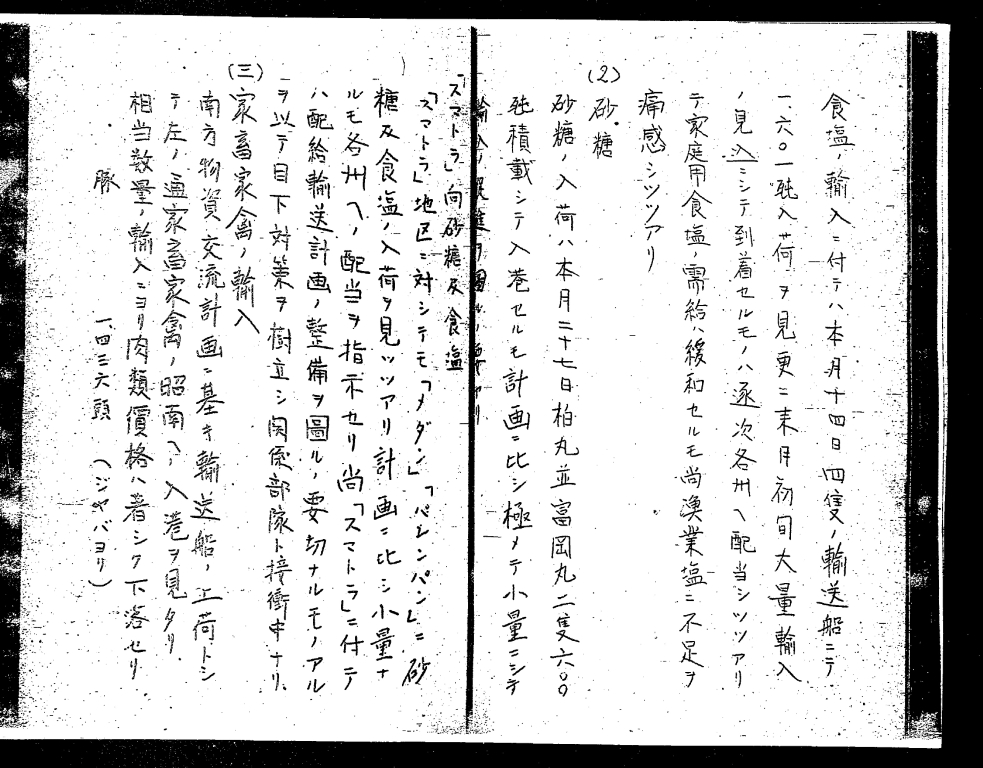 食塩ノ輸入ニ付テハ本月十四日四隻ノ輸送船ニテ
一、六〇一瓲入荷ヲ見更ニ来月初旬大量輸入
ノ見込ニシテ到着セルモノハ逐次各州ヘ配当シツツアリ
テ家庭用食塩ノ需給ハ緩和セルモ尚漁業塩ニ不足ヲ
痛感シツツアリ
(2) 砂糖
砂糖ノ入荷ハ本月二十七日柏丸並富岡丸二隻六〇〇
瓲積載シテ入港セルモ計画ニ比シ極メテ小量ニシテ
輸入ノ促進ヲ図ルノ要アリ
「スマトラ」向砂糖及食塩
「スマトラ」地区ニ対シテモ「メダン」「パレンバン」ニ砂
糖及食塩ノ入荷ヲ見ツツアリ計画ニ比シ小量ナ
ルモ各州ヘノ配当ヲ指示セリ尚「スマトラ」ニ付テ
ハ配給輸送計画ノ整備ヲ図ルノ要切ナルモノアル
ヲ以テ目下対策ヲ樹立シ関係部隊ト接衝中ナリ
(三) 家畜家禽ノ輸入
南方物資交流計画ニ基キ輸送船ノ上荷トシ
テ左ノ通家畜家禽ノ昭南ヘノ入港ヲ見タリ
相当数量ノ輸入ニヨリ肉類價格ハ著シク下落セリ
豚 一、四三六頭 (ジヤバヨリ)